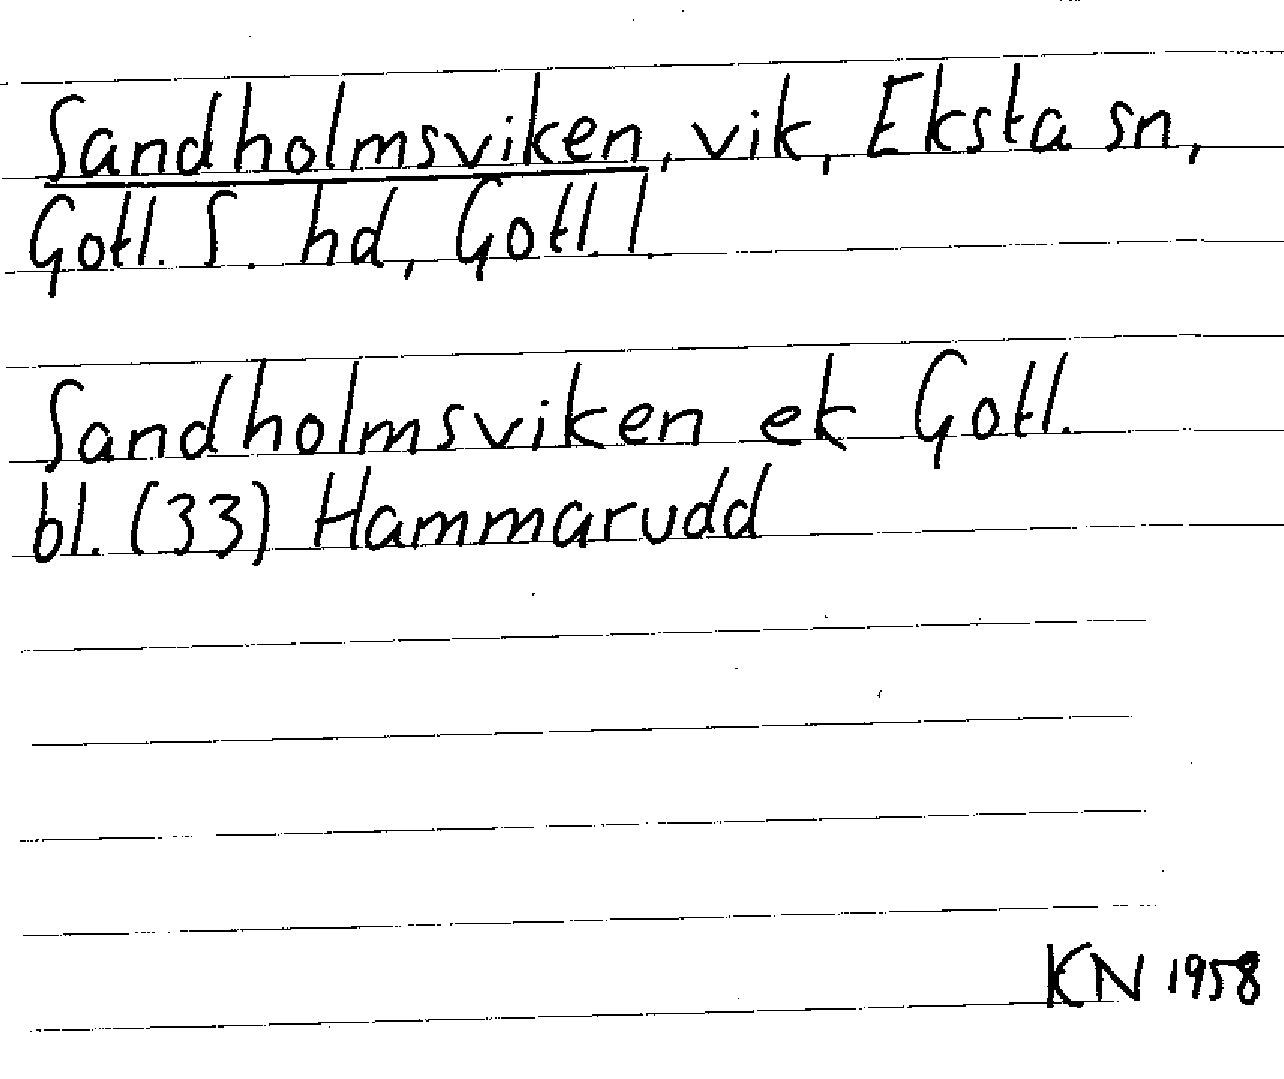 Sandholmsviken, vik, Eksta sn,
Gotl. S. hd, Gotl. l.
Sandholmsviken ek Gotl.
bl. (33) Hammarudd
KN 1958